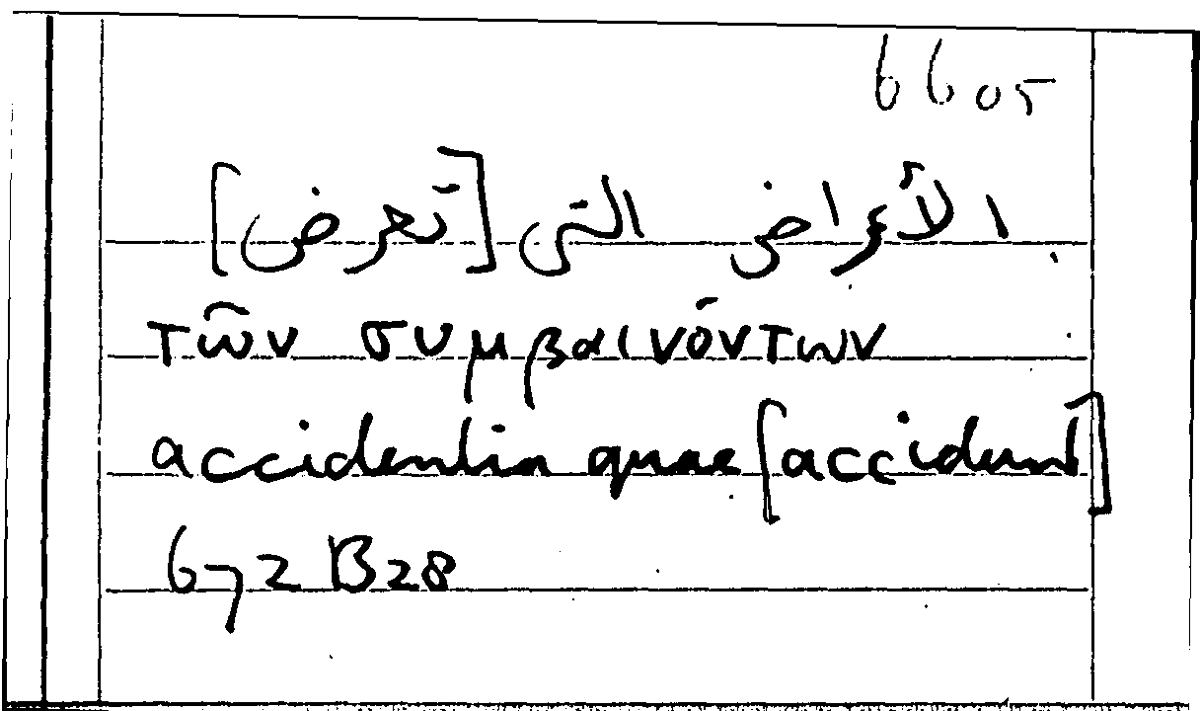 6605
الأعراض التى [تعرض]
τῶν συμβαινόντων
accidentia quae [accidunt]
672 B28